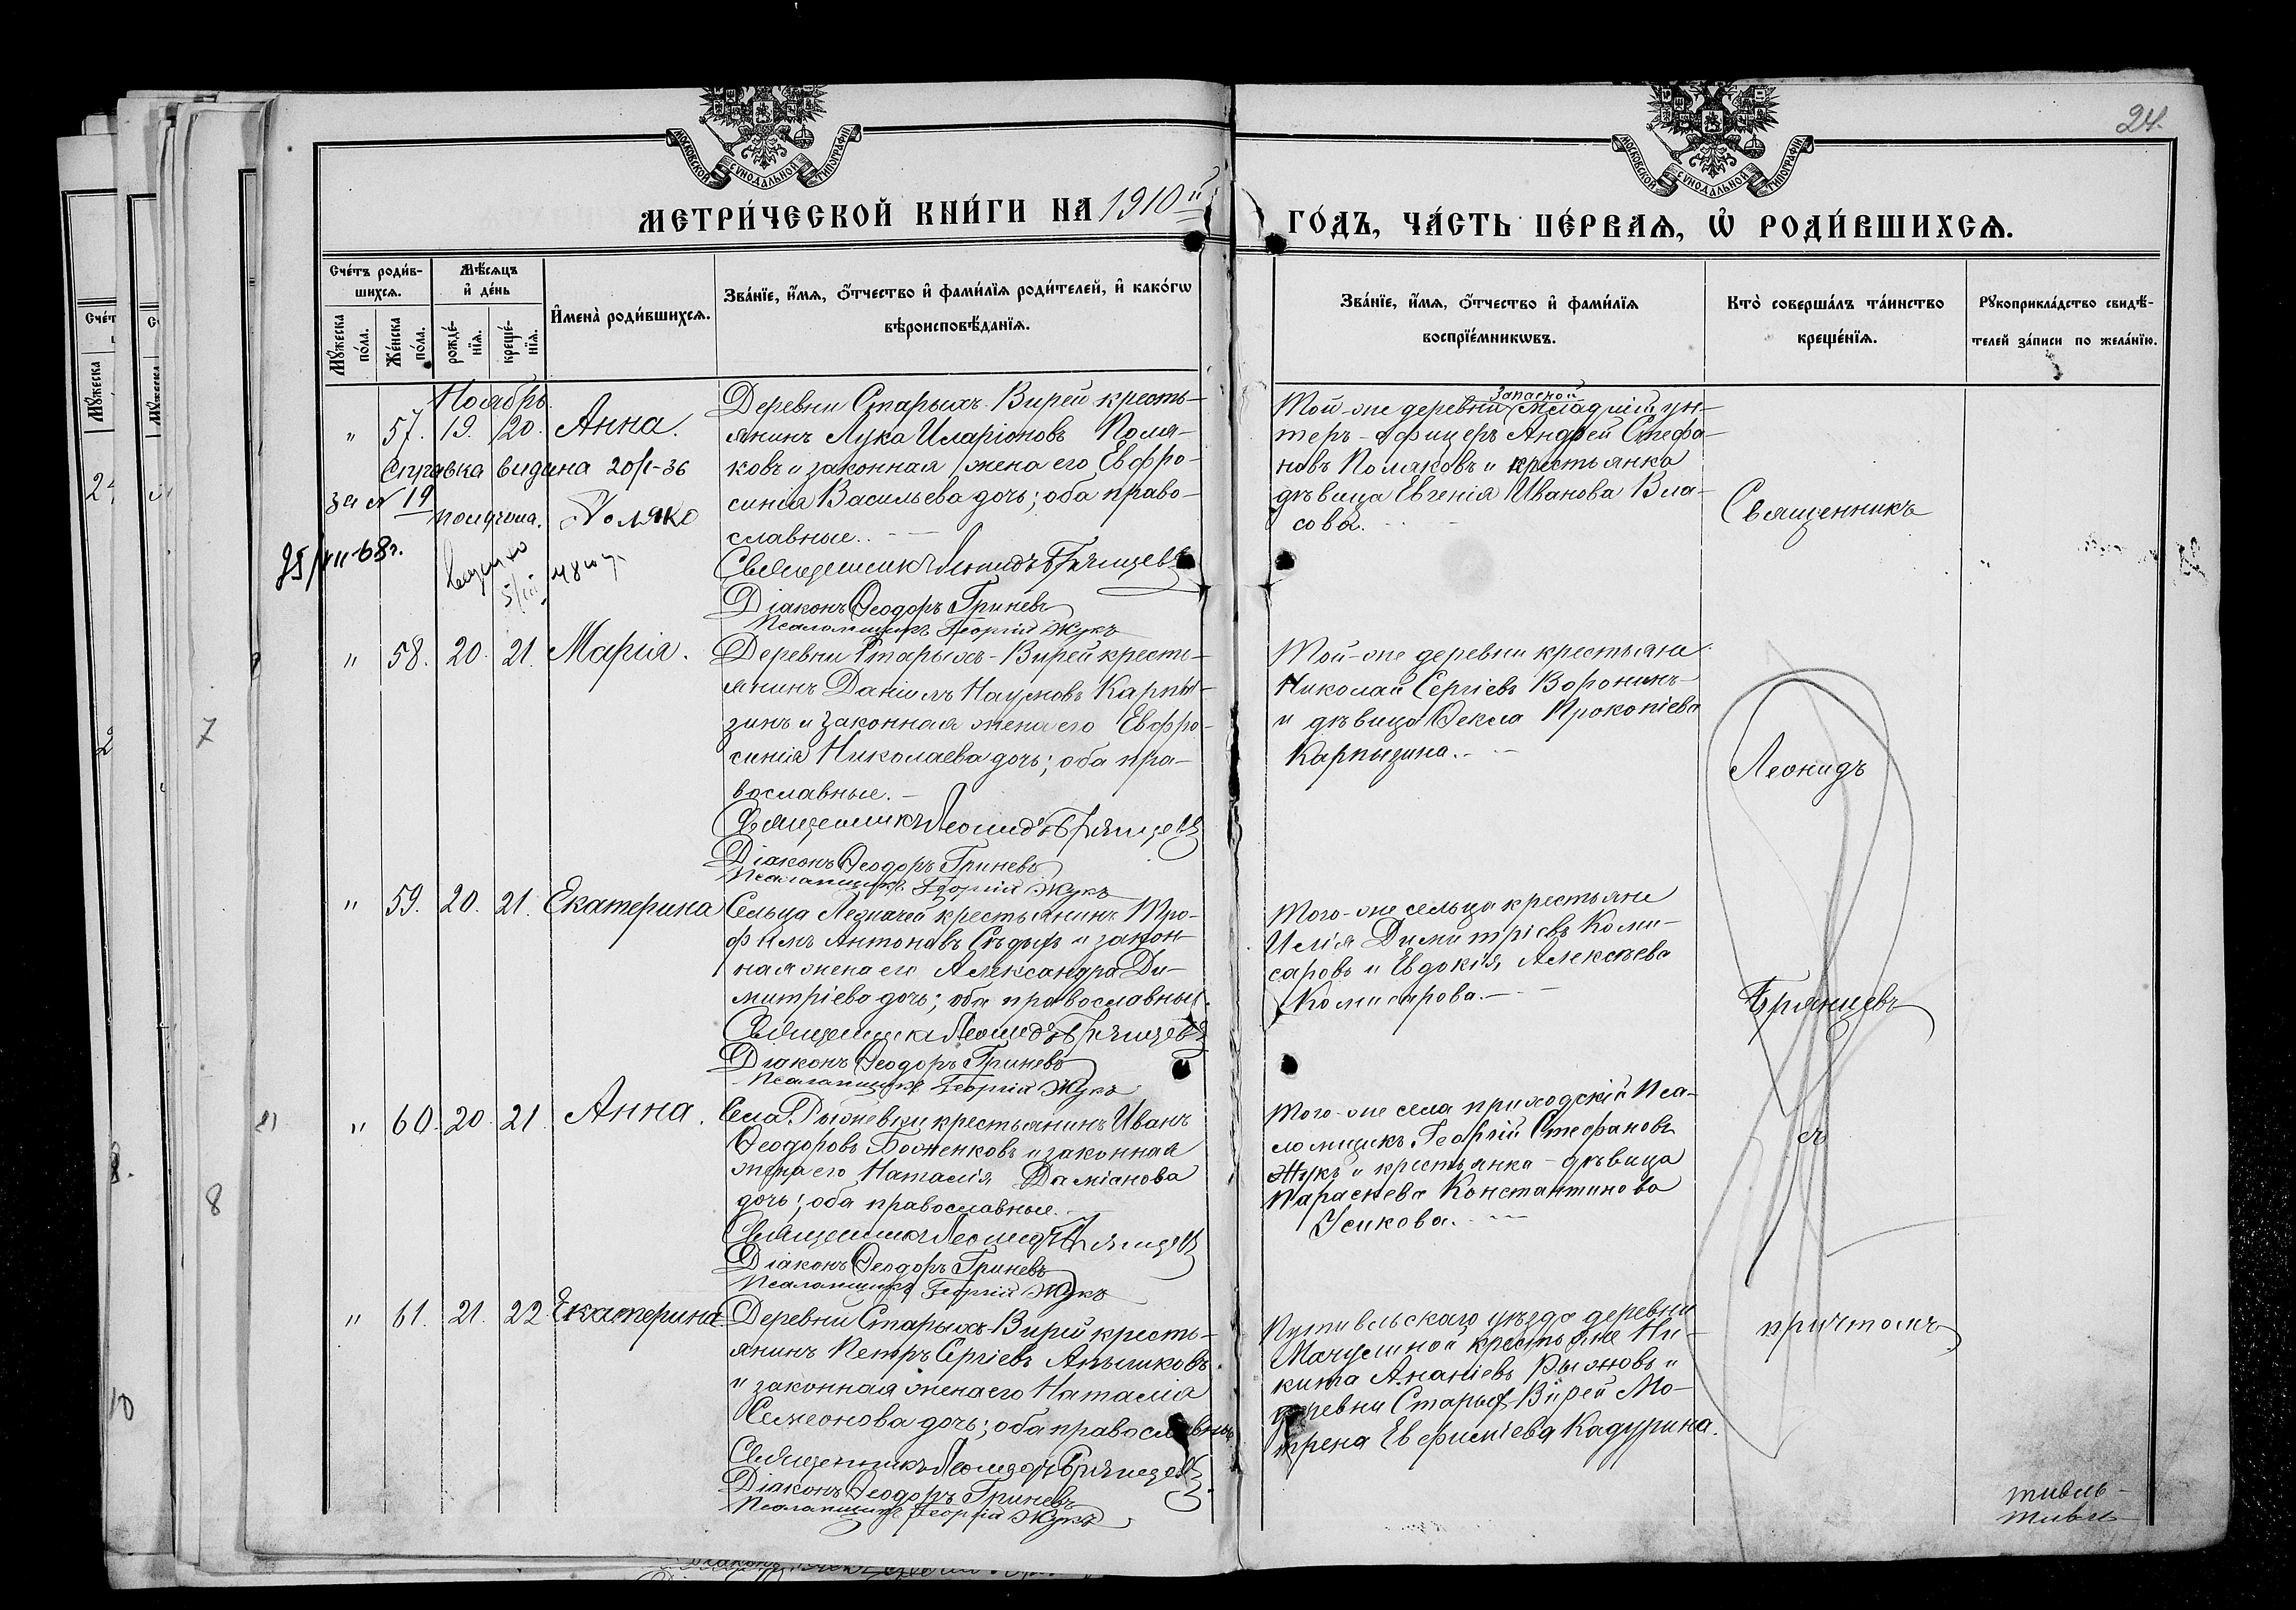 24.
МОСКОВСКОЙ СѴНОДАЛЬНОЙ ТИПОГРАФІИ
МОСКОВСКОЙ СѴНОДАЛЬНОЙ ТИПОГРАФІИ
МЕТРИ́ЧЕСКОЙ КНИ́ГИ НА 1910й
ГО́ДЪ, ЧА́СТЬ ПЕ́РВАѦ, Ѡ҆ РОДИ́ВШИХСѦ.
Сче́тъ роди́в-
шихсѧ.
Мꙋ́жеска по́ла.
Же́нска по́ла.
Мѣ́сѧцъ
и҆ де́нь
рожде́-нїѧ.
креще́-нїѧ.
И҆мена̀ роди́вшихсѧ.
Зва́нїе, и҆́мѧ, ѻ҆́тчество и҆ фами́лїѧ роди́телей, и҆ како́гѡ
вѣроисповѣ́данїѧ.
Зва́нїе, и҆́мѧ, ѻ҆́тчество и҆ фами́лїѧ
воспрїе́мникѡвъ.
Кто̀ соверша́лъ та́инство
креще́нїѧ.
Рꙋкоприкла́дство свидѣ́-
телей за́писи по жела́нїю.
Ноябрь.
" 57. 19. 20. Анна.
Справка видана 20/I-36
за № 19
Поляко
48
68г.
Деревни Старыхъ-Вирей кресть-
янинъ Лука Иларіоновъ Поля-
ковъ и законная жена его Евфро-
синія Васильева дочь; оба право-
славные.
Священникъ Леонидъ Брянцевъ
Діаконъ Ѳеодоръ Гриневъ
Псаломщикъ Георгій Жукъ
Той-же деревни запасной младшій ун-
теръ-офицеръ Андрей Стефа-
новъ Поляковъ и крестьянка
дѣвица Евгенія Иванова Вла-
сова.
Священникъ
" 58. 20. 21. Марія.
Деревни Старыхъ-Вирей кресть-
янинъ Даніилъ Наумовъ Карпы-
зинъ и законная жена его Евфро-
синія Николаева дочь; оба пра-
вославные.
Священникъ Леонидъ Брянцевъ
Діаконъ Ѳеодоръ Гриневъ
Псаломщикъ Георгій Жукъ
Той-же деревни крестьяне
Николай Сергіевъ Воронинъ
и дѣвица Ѳекла Прокопіева
Карпызина.
Леонидъ
" 59. 20. 21. Екатерина
Сельца крестьянинъ Тро-
фимъ Антоновъ Сѣдыхъ и закон-
ная жена его Александра Ди-
митріева дочь; оба православные.
Священникъ Леонидъ Брянцевъ
Діаконъ Ѳеодоръ Гриневъ
Псаломщикъ Георгій Жукъ
Того-же сельца крестьяне
Илія Димитріевъ Коми-
саровъ и Евдокія Алексѣева
Комисарова.
Брянцевъ
" 60. 20. 21. Анна.
Села Рыжевки крестьянинъ Иванъ
Ѳеодоровъ Боженковъ и законная
жена его Наталія Даміанова
дочь; оба православные.
Священникъ Леонидъ Брянцевъ
Діаконъ Ѳеодоръ Гриневъ
Псаломщикъ Георгій Жукъ
Того-же села приходскій Пса-
ломщикъ Георгій Стефановъ
Жукъ и крестьянка-дѣвица
Параскева Константинова
Усикова.
съ
" 61. 21. 22. Екатерина.
Деревни Старыхъ-Вирей кресть-
янинъ Петръ Сергіевъ
и законная жена его Наталія
Симеонова дочь; оба православные
Священникъ Леонидъ Брянцевъ
Діаконъ Ѳеодоръ Гриневъ
Псаломщикъ Георгій Жукъ
Путивльскаго уѣзда деревни
Мачулиной крестьяне Ни-
кита Ананіевъ Рыжовъ и
деревни Старыхъ-Вирей Мо-
трена Евфиміева Кадурина.
причтомъ
тивль-
тивль
7
8